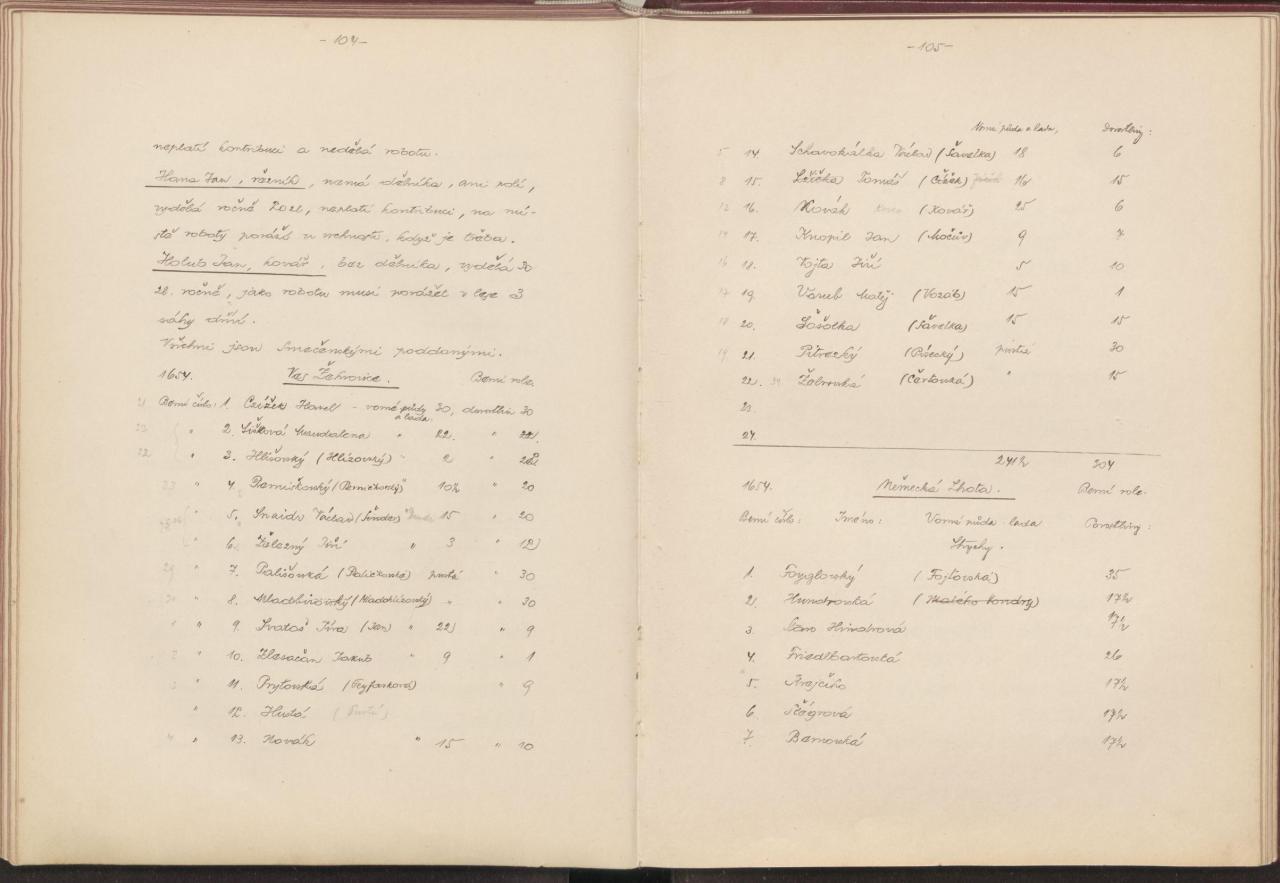 - 104 -
neplatí kontribuci a nedělá robotu.
Hana Jan, řezník, nemá dělníka, ani polí,
vydělá ročně 20 zl, neplatí kontribuci, na mí-
stě roboty poráží u vrchnosti, když je třeba.
Holub Jan, kovář, bez dělníka, vydělá 30
zl. ročně, jako robotu musí porážet v lese 3
sáhy dříví.
Všichni jsou Smečenskými poddanými.
1654. Ves Žehrovice. Berní role.
21 Berní číslo: 1. Czížek Havel - vorné půdy a lada 30, dorostliny 30
23 " 2. Šišková Mandalena " 22. " 22.
22 " 3. Hlišovský (Hlizovský) " 2 "
23 " 4. Perniškovský (Perničkovský) " 10½ " 20
" 5. Snaidr Václav (Šnider) " 15 " 20
" 6. Železný Jiří " 3 " 12
29 " 7. Pališovká (Paličkovská) pusté " 30
" 8. Mladhirovský (Mladohlizovský) " " 30
" 9. Svatoš Jíra (Jan) " 22 " 9
" 10. Zlesačan Jakub " 9 " 1
" 11. Prytovská (Fryfarková) " 9
" 12. Hustá (Pustá)
4 " 13. Novák " 15 " 10
- 105 -
Vorní půda a lada, Dorostliny:
5 14. Schavokálka Václav (Šavelka) 18 6
8 15. Ležička Tomáš (Čížek) 16 15
12 16. Kovák (Kovář) 25 6
14 17. Knopil Jan (Močův) 9 7
16 18. Vojta Jiří 5 10
17 19. Vozub Matěj (Vozáb) 15 1
18 20. Šošolka (Šavelka) 15 15
19 21. Pitrecký (Písecký) pusté 30
22. Žebrovská (Čertovská) " 15
23.
24.
241½ 304
1654. Německá Lhota. Berní role.
Berní číslo: Jméno: Vorné půda - lada Porostliny:
Strychy.
1. Foyglovský (Fojtovská) 35
2. Hundrovská (Malého Kondry) 17½
3. Hindrová 17½
4. Friedlbartovká 26
5. Krejčiho 17½
6. Ságrová 17½
7. Bernovská 17½